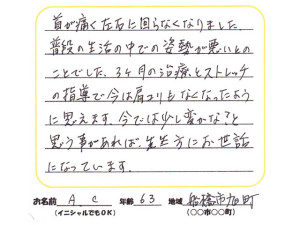 首が痛く左右に回らなくなりました。
普段の生活の中での姿勢が悪いとの
ことでした。3ヶ月の治療とストレッチ
の指導で今は肩コリもなくなったよう
に思えます。今では少し変かな?と
思う事があれば、先生方にお世話
になっています。
お名前 A.C 年齢 63 地域 船橋市旭町
(イニシャルでもOK) (○○市○○町)